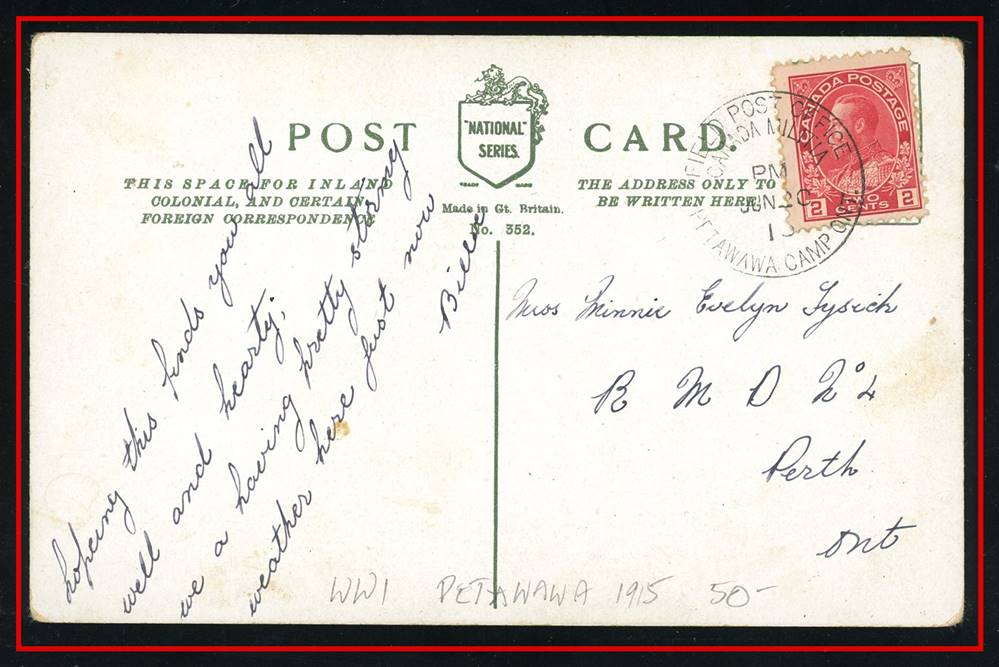 POST CARD.
"NATIONAL"
SERIES.
TRADE MARK
THIS SPACE FOR INLAND
COLONIAL, AND CERTAIN
FOREIGN CORRESPONDENCE
Made in Gt. Britain.
No. 352.
THE ADDRESS ONLY TO
BE WRITTEN HERE
CANADA POSTAGE
2 TWO CENTS 2
FIELD POST OFFICE
CANADA MILITIA
PM
JUN 20
15
PETAWAWA CAMP ONT
hopeing this finds you all
well and hearty.
we a having pretty strong
weather here just now
Billie
Miss Minnie Evelyn
R M D No 4
Perth
Ont
WW1 PETAWAWA 1915 50-